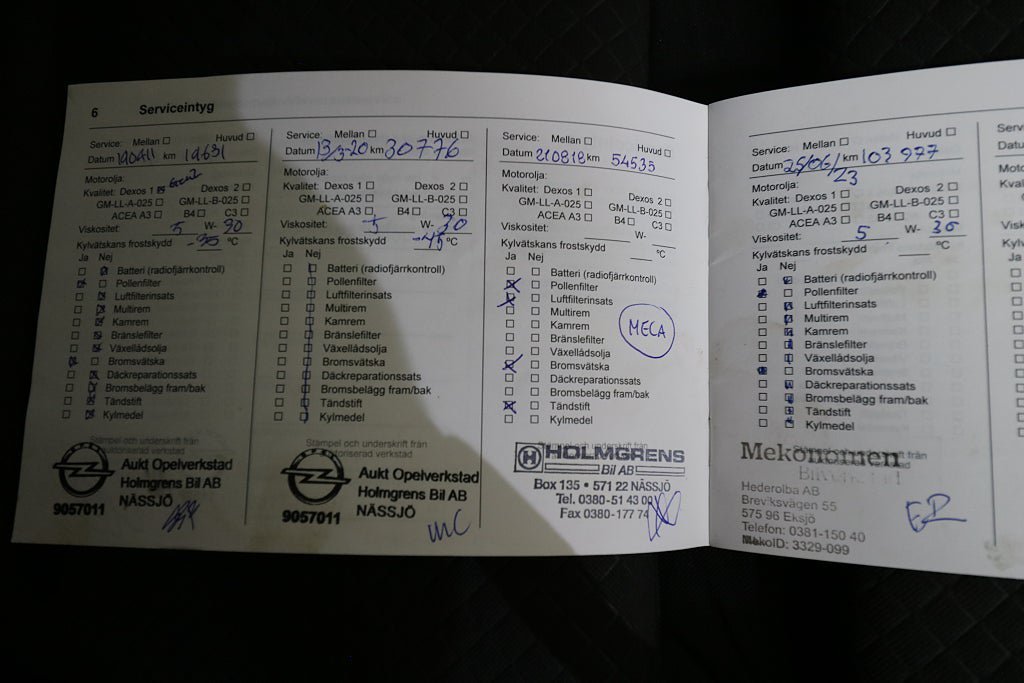 6 Serviceintyg
Service: Mellan Huvud
Datum 190411 km 19631
Motorolja:
Kvalitet: Dexos 1 Dexos 2
GM-LL-A-025 GM-LL-B-025
ACEA A3 B4 C3
Viskositet: 5 W- 30
Kylvätskans frostskydd -35 °C
Ja Nej
Batteri (radiofjärrkontroll)
Pollenfilter
Luftfilterinsats
Multirem
Kamrem
Bränslefilter
Växellådsolja
Bromsvätska
Däckreparationssats
Bromsbelägg fram/bak
Tändstift
Kylmedel
Stämpel och underskrift från
auktoriserad verkstad
Aukt Opelverkstad
Holmgrens Bil AB
NÄSSJÖ
9057011
Service: Mellan Huvud
Datum 13/3-20 km 30776
Motorolja:
Kvalitet: Dexos 1 Dexos 2
GM-LL-A-025 GM-LL-B-025
ACEA A3 B4 C3
Viskositet: 5 W- 30
Kylvätskans frostskydd -45 °C
Ja Nej
Batteri (radiofjärrkontroll)
Pollenfilter
Luftfilterinsats
Multirem
Kamrem
Bränslefilter
Växellådsolja
Bromsvätska
Däckreparationssats
Bromsbelägg fram/bak
Tändstift
Kylmedel
Stämpel och underskrift från
auktoriserad verkstad
Aukt Opelverkstad
Holmgrens Bil AB
NÄSSJÖ
9057011
Service: Mellan Huvud
Datum 210818 km 54535
Motorolja:
Kvalitet: Dexos 1 Dexos 2
GM-LL-A-025 GM-LL-B-025
ACEA A3 B4 C3
Viskositet: W-
Kylvätskans frostskydd °C
Ja Nej
Batteri (radiofjärrkontroll)
Pollenfilter
Luftfilterinsats
Multirem
Kamrem
MECA
Bränslefilter
Växellådsolja
Bromsvätska
Däckreparationssats
Bromsbelägg fram/bak
Tändstift
Kylmedel
HOLMGRENS
Bil AB
Box 135 • 571 22 NÄSSJÖ
Tel. 0380-51 43 00
Fax 0380-177 74
Service: Mellan Huvud
Datum 25/06/23 km 103 977
Motorolja:
Kvalitet: Dexos 1 Dexos 2
GM-LL-A-025 GM-LL-B-025
ACEA A3 B4 C3
Viskositet: 5 W- 30
Kylvätskans frostskydd °C
Ja Nej
Batteri (radiofjärrkontroll)
Pollenfilter
Luftfilterinsats
Multirem
Kamrem
Bränslefilter
Växellådsolja
Bromsvätska
Däckreparationssats
Bromsbelägg fram/bak
Tändstift
Kylmedel
Mekonomen
Bilverkstad
Hederolba AB
Breviksvägen 55
575 96 Eksjö
Telefon: 0381-150 40
MekoID: 3329-099